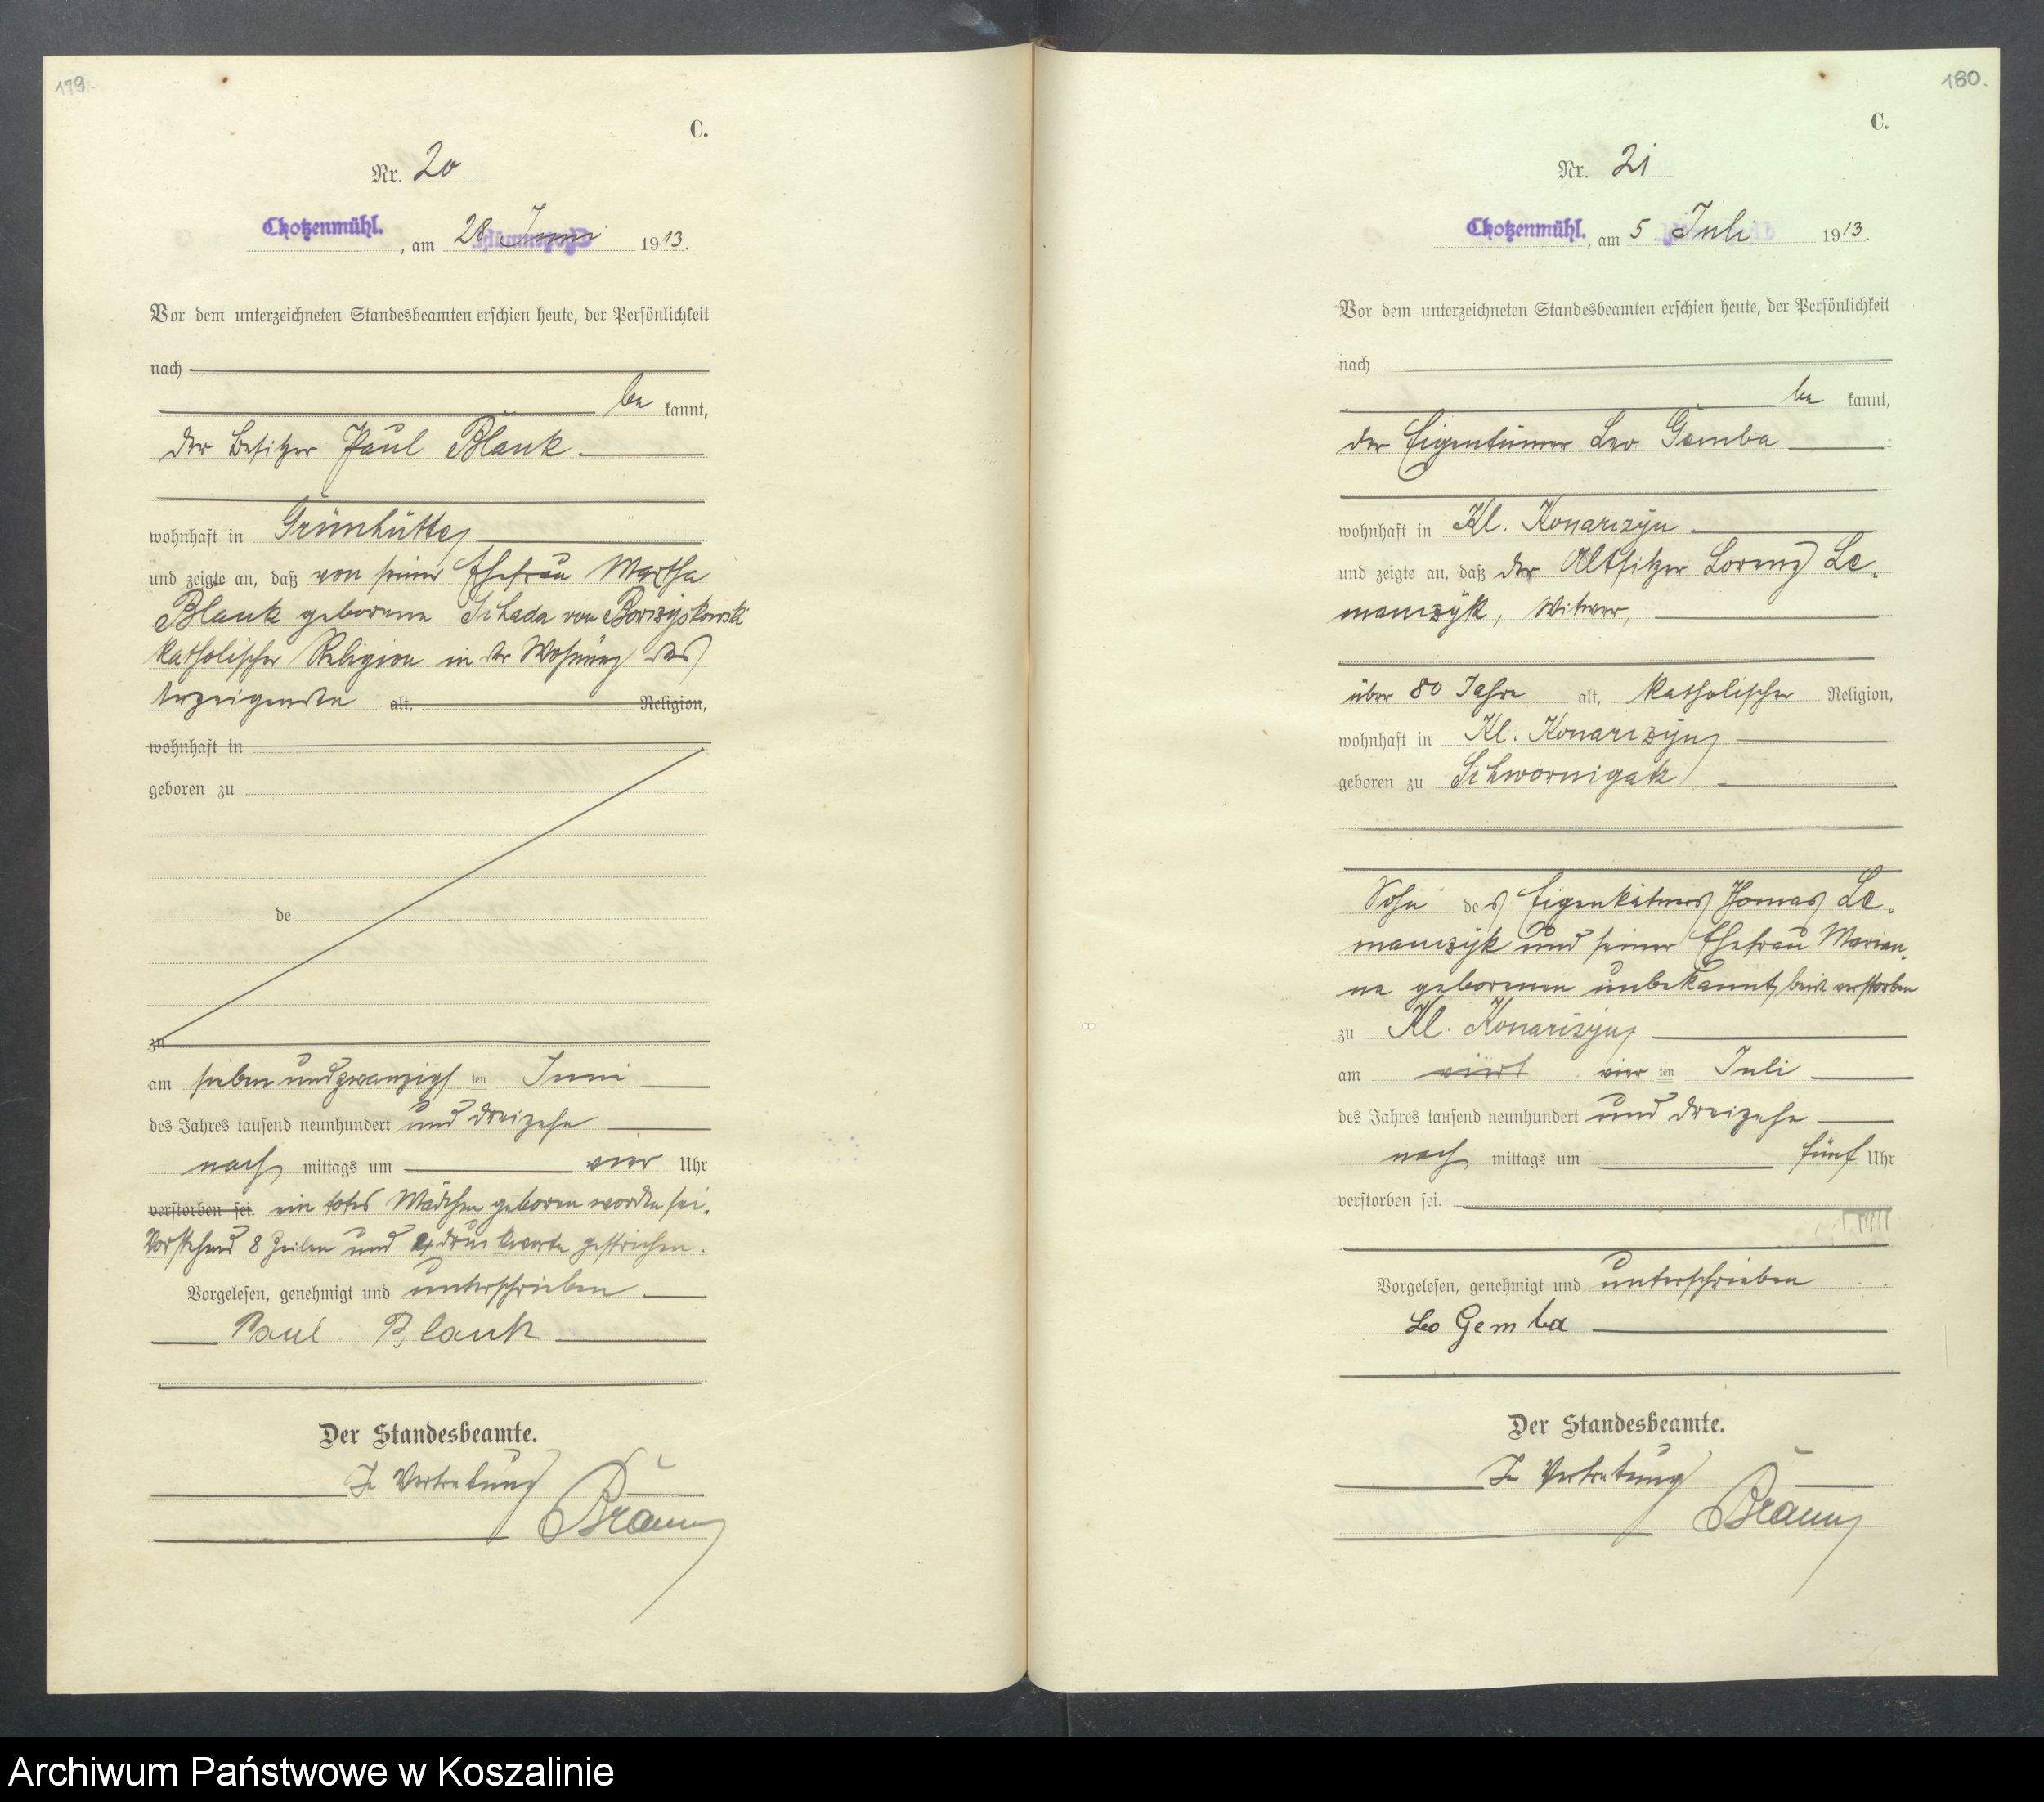 179.
C.
Nr. 20
Chotzenmühl., am 28 Juni 1913.
Vor dem unterzeichneten Standesbeamten erschien heute, der Persönlichkeit
nach
be kannt,
der Besitzer Paul Blank
wohnhaft in Grünhütte
und zeigte an, daß von seiner Ehefrau Martha
Blank geborene Schada von Borzyskowski
katholischer Religion in der Wohnung des
Anzeigenden alt, Religion,
wohnhaft in
geboren zu
de
zu
am sieben und zwanzigsten Juni
des Jahres tausend neunhundert und dreizehn
nach mittags um vier Uhr
verstorben sei. ein totes Mädchen geboren worden sei.
Vorstehend 8 Zeilen und Druckworte gestrichen.
Vorgelesen, genehmigt und unterschrieben
Paul Blank
Der Standesbeamte.
In Vertretung
Braun
180.
C.
Nr. 21
Chotzenmühl., am 5. Juli 1913.
Vor dem unterzeichneten Standesbeamten erschien heute, der Persönlichkeit
nach
be kannt,
der Eigentümer Leo Gemba
wohnhaft in Kl. Konarczyn
und zeigte an, daß der Altsitzer Lorenz Le-
manczyk, Witwer,
über 80 Jahre alt, katholischer Religion,
wohnhaft in Kl. Konarczyn
geboren zu Schwornigatz
Sohn des Eigenkätners Thomas Le-
manczyk und seiner Ehefrau Marian-
na geborenen unbekannt, beide verstorben
zu Kl. Konarczyn
am viert vier ten Juli
des Jahres tausend neunhundert und dreizehn
nach mittags um fünf Uhr
verstorben sei.
Vorgelesen, genehmigt und unterschrieben
Leo Gemba
Der Standesbeamte.
In Vertretung
Braun
Archiwum Państwowe w Koszalinie